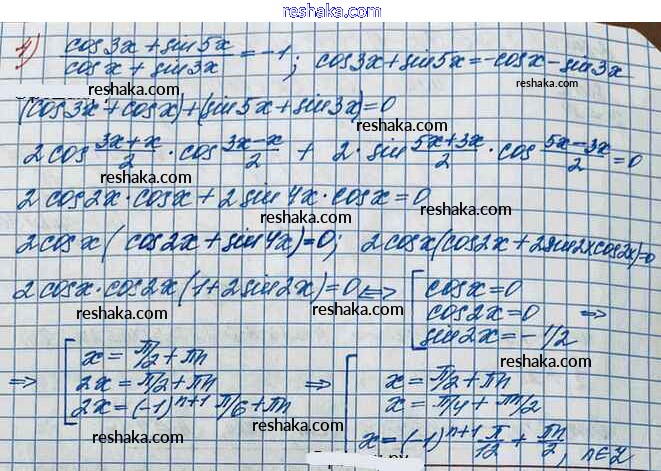 reshaka.com
4) (cos3x + sin5x)/(cosx + sin3x) = -1; cos3x + sin5x = -cosx - sin3x
reshaka.com reshaka.com
(cos3x + cosx) + (sin5x + sin3x) = 0
reshaka.com
2cos (3x+x)/2 · cos (3x-x)/2 + 2 · sin (5x+3x)/2 · cos (5x-3x)/2 = 0
reshaka.com reshaka.com
2cos2x · cosx + 2sin4x · cosx = 0
reshaka.com reshaka.com
2cosx(cos2x + sin4x) = 0; 2cosx(cos2x + 2sin2xcos2x) = 0
reshaka.com reshaka.com
2cosx · cos2x(1 + 2sin2x) = 0 <=> [ cosx = 0
cos2x = 0 =>
sin2x = -1/2
reshaka.com reshaka.com
=> [ x = π/2 + πn
2x = π/2 + πn
2x = (-1)^{n+1} π/6 + πn
=> [ x = π/2 + πn
x = π/4 + πn/2
x = (-1)^{n+1} π/12 + πn/2, n∈Z
reshaka.com reshaka.com